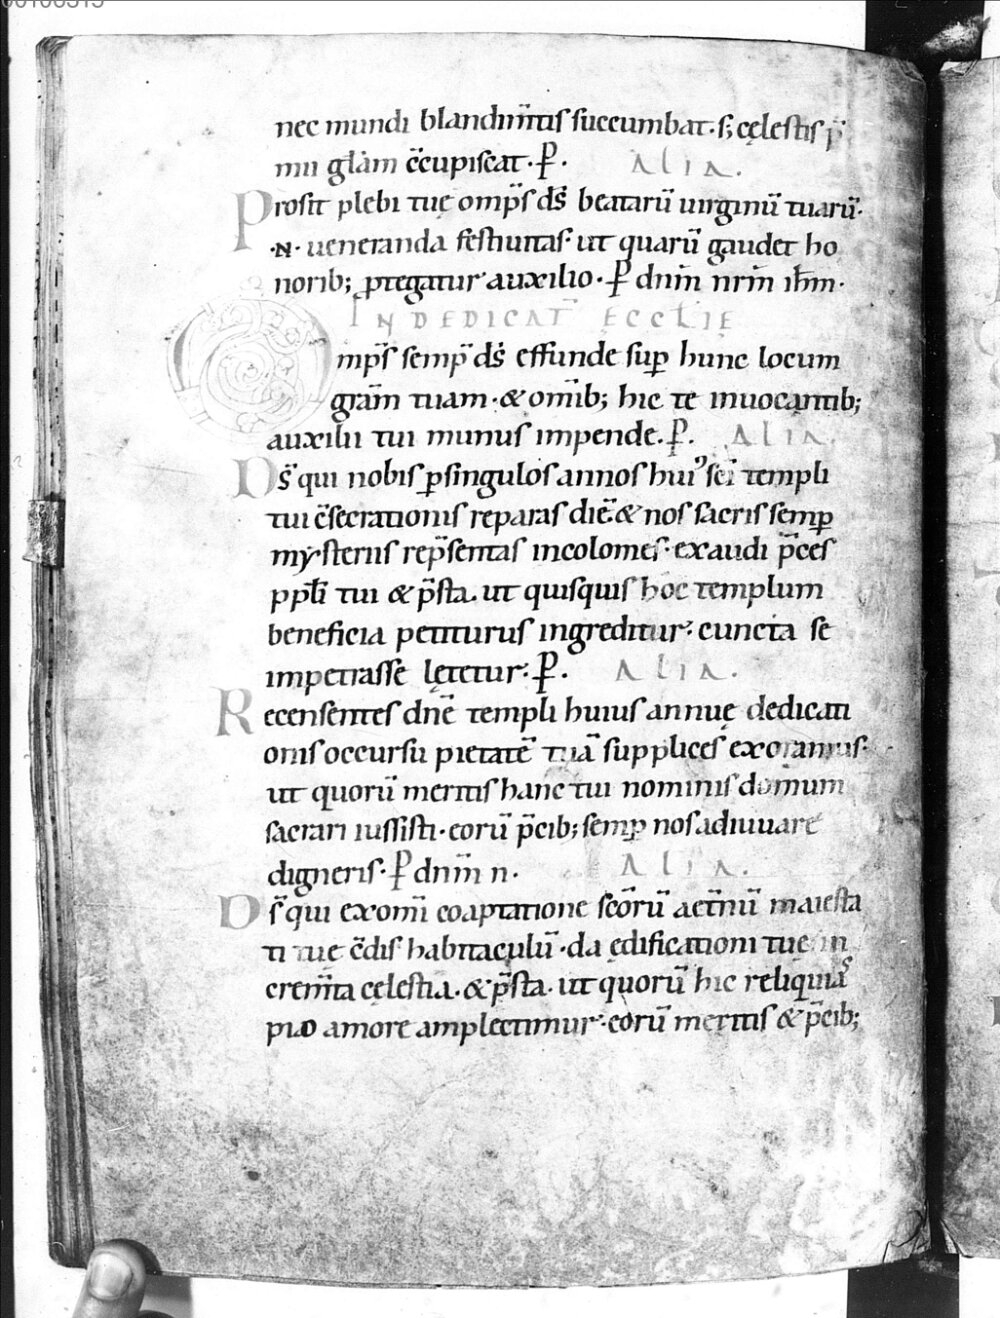 nec mundi blandim̅tis succumbat · s; cęlestis p̅
mii gl̅am c̅cupiscat · P̅ · ALIA.
Prosit plebi tuę omp̅s ds̅ beatarū uirginū tuarū ·
·N· ueneranda festiuitas · ut quarū gaudet ho
norib; ꝓtegatur auxilio · P̅ dnm̅ nrm̅ ihm̅ ·
IN DEDICAT̅ ECCLIE
Omp̅s semp̅ ds̅ effunde suꝑ hunc locum
gra̅m tuam · & om̅ib; hic te inuocantib;
auxilii tui munus impende. P̅. ALIA.
Ds̅ qui nobis ꝑ singulos annos hui᾽ sc̅i templi
tui c̅secrationis reparas diē · & nos sacris semꝑ
mysteriis rep̅sentas incolomes · exaudi p̅ces
ppl̅i tui & p̅sta · ut quisquis hoc templum
beneficia petiturus ingreditur · cuncta se
impetrasse lętetur · P̅ · ALIA.
Recensentes dn̅e templi huius annuę dedicati
onis occursū pietatē tuā supplices exoramus ·
ut quorū meritis hanc tui nominis domum
sacrari iussisti · eorū p̅cib; semꝑ nos adiuuare
digneris · P̅ dnm̅ n · ALIA.
Ds̅ qui ex om̅i coaptatione sc̅orū aet̅nū maiesta
ti tuę c̅dis habitaculū · da ędificationi tuę in
crem̅ta cęlestia · & p̅sta · ut quorū hic reliquias
pio amore amplectimur · eorū meritis & p̅cib;